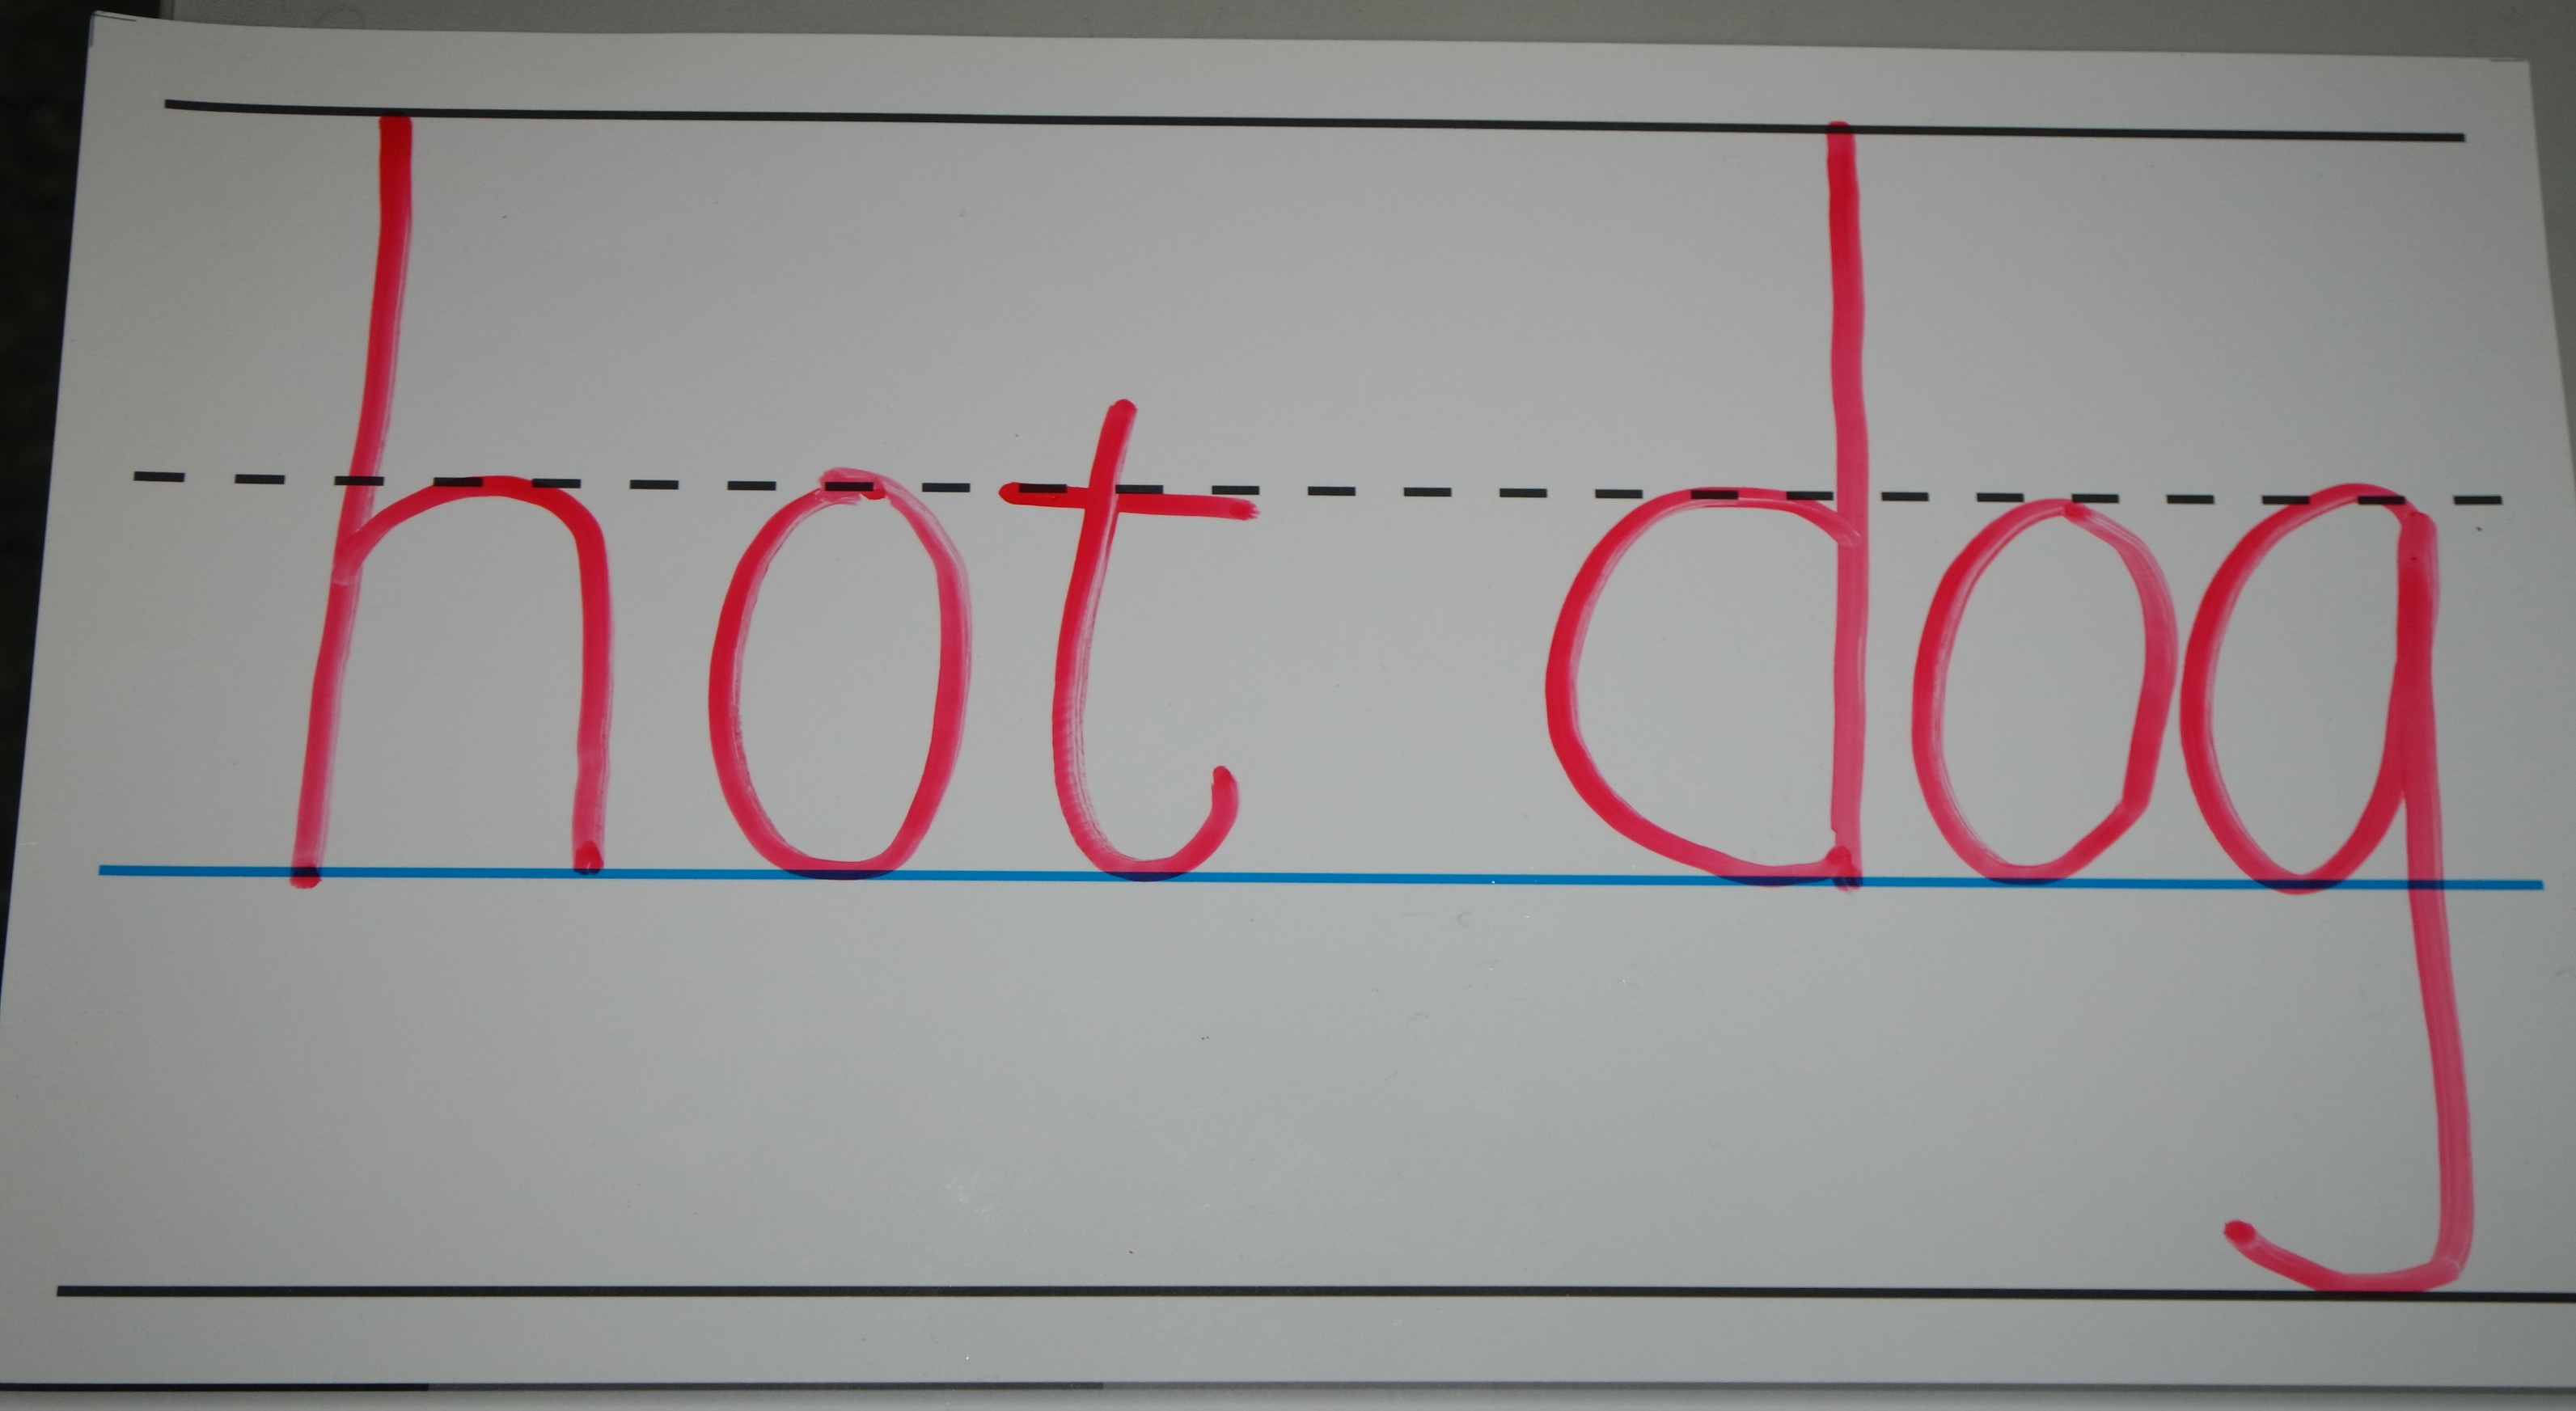 hot dog